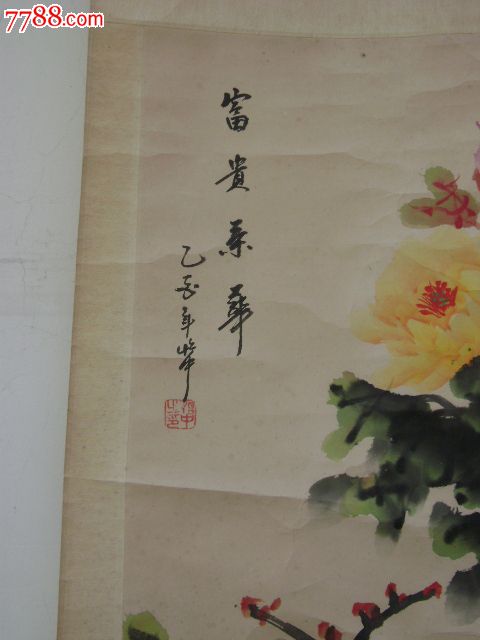 7788.com
富貴荣華
乙亥年